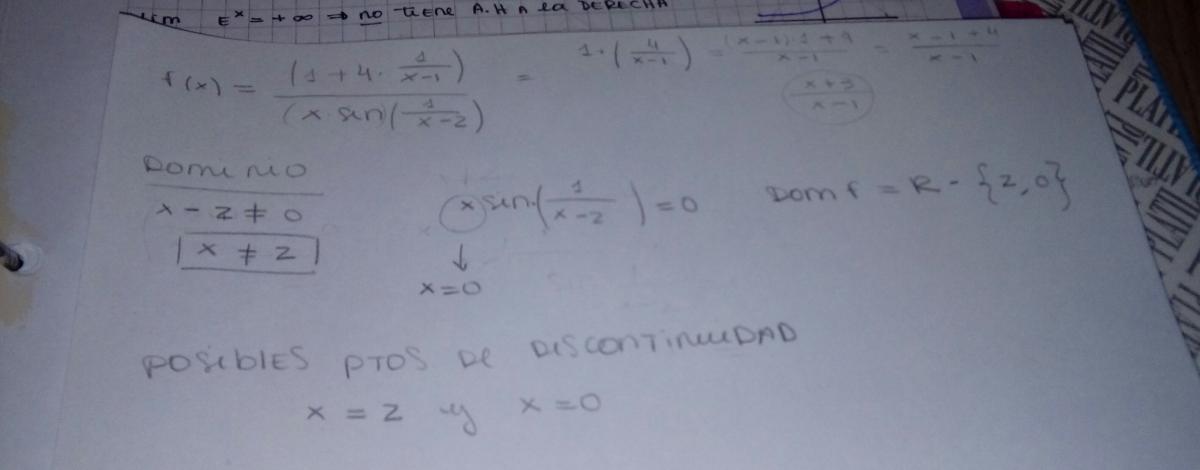 lim Eˣ = +∞ ⇒ no tiene A.H A la DERECHA
f(x) = (1 + 4 · 1/(x-1)) / (x · sin(1/(x-2)) = 1 · (4/(x-1)) = (x-1)·1+4 / x-1 = x-1+4 / x-1
x+3 / x-1
Dominio
x - 2 ≠ 0
x ≠ 2
x sin · (1/(x-2)) = 0
↓
x = 0
Dom f = R - {2,0}
POSIBLES PTOS DE DISCONTINUIDAD
x = 2 y x = 0
PLATI